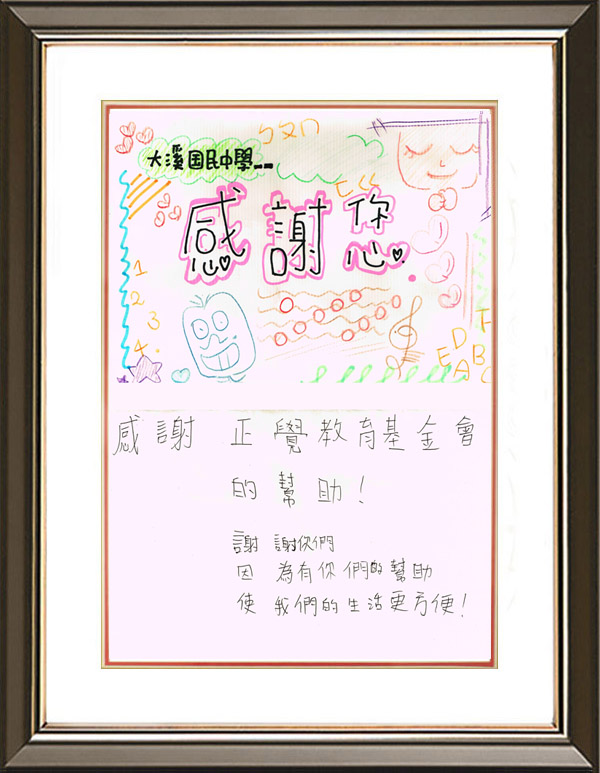 ㄅㄆㄇ
大溪国民中學
感謝您
1
2
3
4.
E
D
F
A B C
感謝 正覺教育基金會
的幫助！
謝 謝你們
因 為有你們的幫助
使 我們的生活更方便！